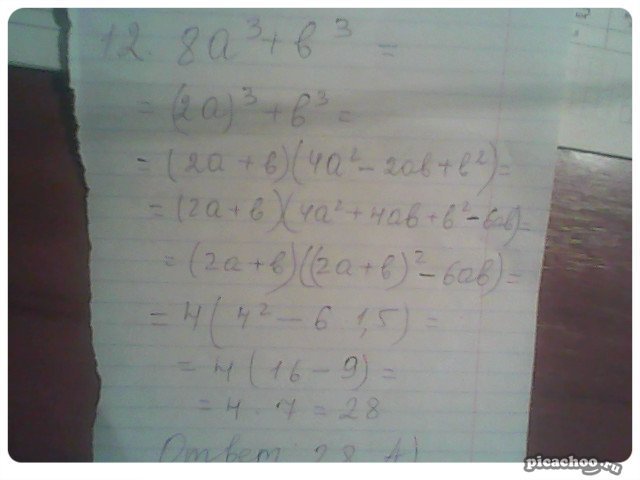 12. 8a³ + b³ =
= (2a)³ + b³ =
= (2a + b)(4a² - 2ab + b²) =
= (2a + b)(4a² + 4ab + b² - 6ab) =
= (2a + b)((2a + b)² - 6ab) =
= 4(4² - 6 1,5) =
= 4(16 - 9) =
= 4 · 7 = 28
Ответ: 28 A)
picachoo.ru